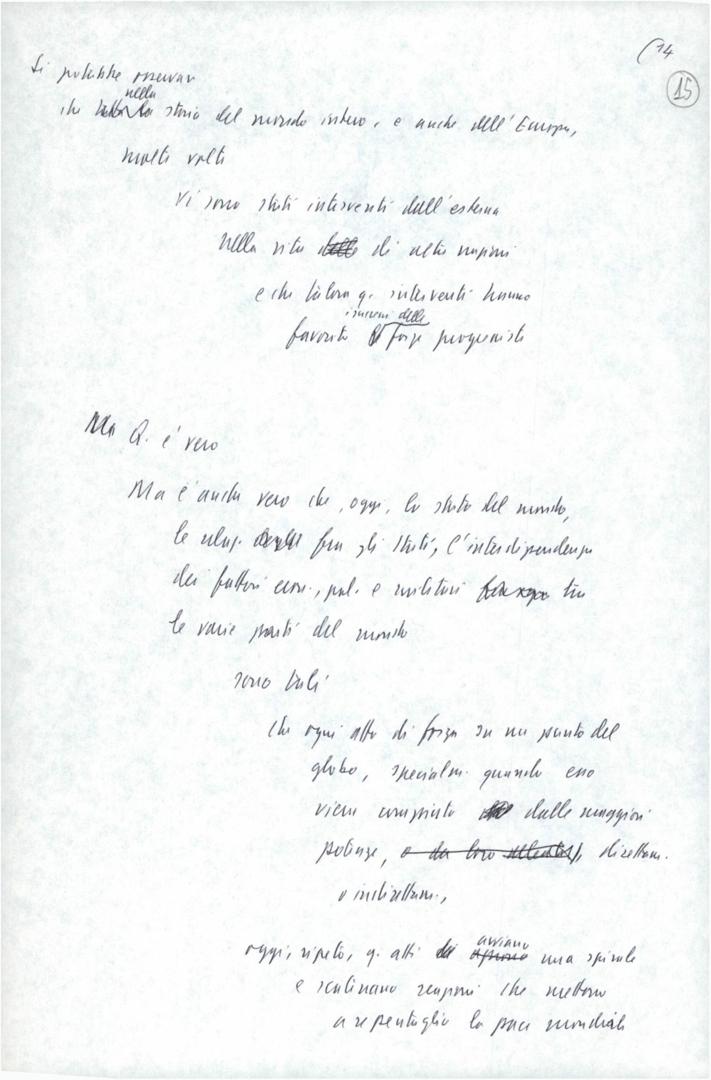 (14
15
Si potrebbe osservar
nella
che storia del mondo intero, e anche dell'Europa,
molte volte
vi sono stati interventi dall'esterno
nella vita di altre nazioni
e che talora q. interventi hanno
delle
favorito forze progressiste
Ma Q. è vero
Ma è anche vero che, oggi, lo stato del mondo,
le relaz. fra gli Stati, l'interdipendenza
dei fattori econ., pol. e militari tra
le varie parti del mondo
sono tali
che ogni atto di forza in un punto del
globo, specialm. quando esso
viene compiuto dalle maggiori
potenze, o da loro direttam.
o indirettam.,
avviano
oggi, ripeto, q. atti una spirale
e scatenano reazioni che mettono
a repentaglio la pace mondiale